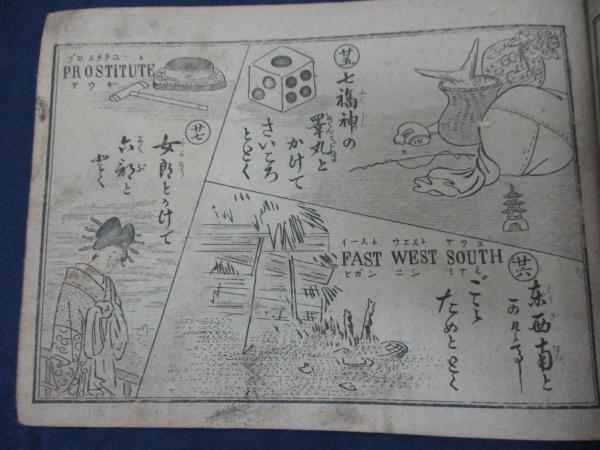 廿五
七福神の
睾丸と
かけて
さいころ
ととく
イースト ウエスト サウス
FAST WEST SOUTH
ヒガシ ニシ ミナミ
廿六
东西南と
ためととく
プロスチチユート
PROSTiTUTE
廿七
女郎とかけて
六部と
とく